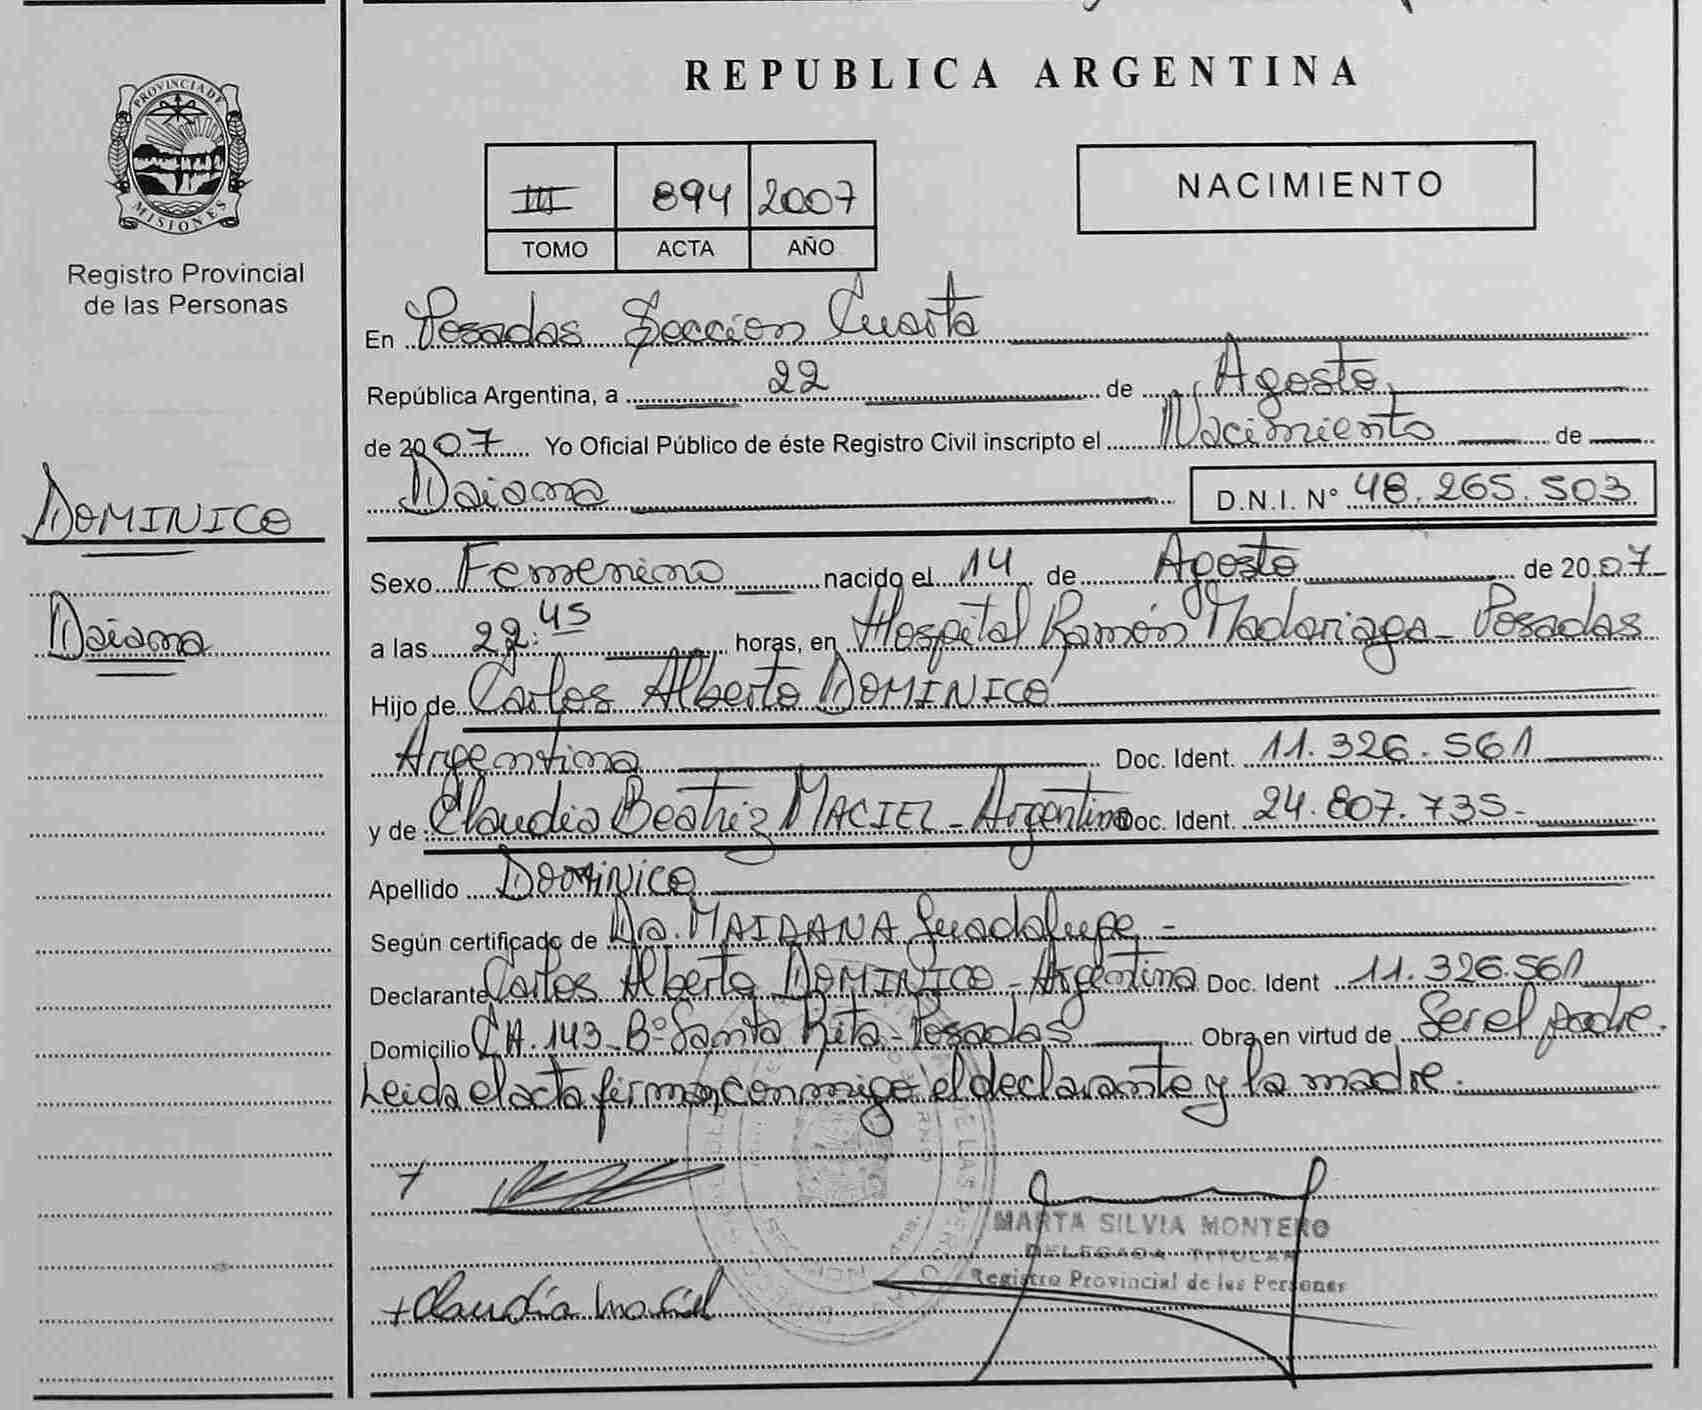 PROVINCIA DE
MISIONES
Registro Provincial
de las Personas
DOMINICO
Daiana
REPUBLICA ARGENTINA
III 894 2007
TOMO ACTA AÑO
NACIMIENTO
En Posadas Sección Cuarta
República Argentina, a 22 de Agosto
de 2007 Yo Oficial Público de éste Registro Civil inscripto el Nacimiento de
Daiana D.N.I. N° 48.265.503
Sexo Femenino nacido el 14 de Agosto de 2007
a las 22:45 horas, en Hospital Ramón Madariaga - Posadas
Hijo de Carlos Alberto DOMINICO
Argentina Doc. Ident. 11.326.561
y de Claudia Beatriz MACIEL - Argentina Doc. Ident. 24.807.735-
Apellido DOMINICO
Según certificado de Dra. MAIDANA Guadalupe -
Declarante Carlos Alberto DOMINICO - Argentina Doc. Ident 11.326.561
Domicilio CH. 143 - B° Santa Rita - Posadas Obra en virtud de Ser el padre.
Leida el acta firman conmigo el declarante y la madre.
MARTA SILVIA MONTERO
DELEGADA TITULAR
Registro Provincial de las Personas
+ Claudia Maciel